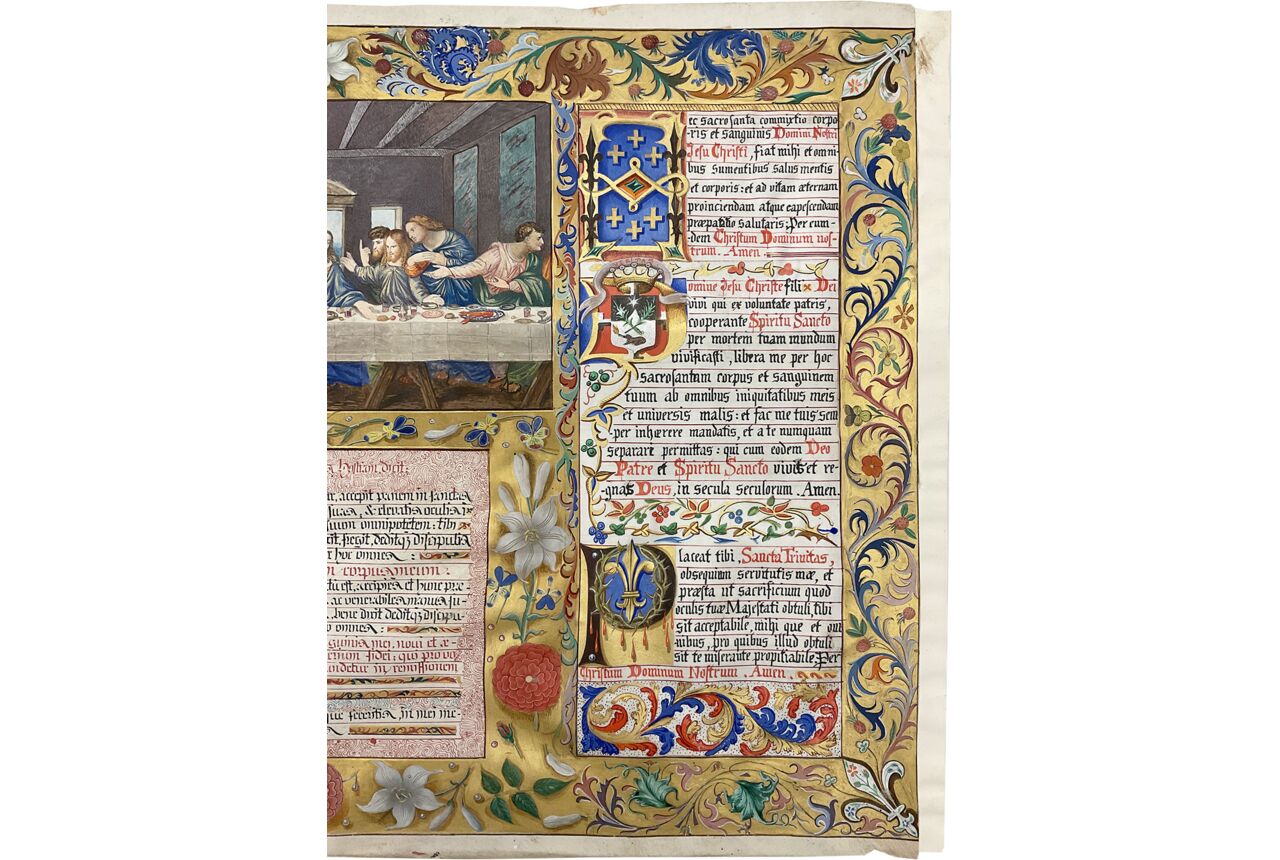 ec sacrosanta commixtio corpo
-ris et sanguinis Domini Nostri
Jesu Christi, fiat mihi et omni
bus sumentibus salus mentis
et corporis: et ad vitam æternam
proinciendam atque capescendam
salutaris; Per eum-
-dem Christum Dominum nos-
trum. Amen.
omine Jesu Christe fili Dei
vivi qui ex voluntate patris,
cooperante Spiritu Sancto
per mortem tuam mundum
vivificasti, libera me per hoc
sacrosantum corpus et sanguinem
tuum ab omnibus iniquitatibus meis
et universis malis: et fac me tuis sem
-per inhærere mandatis, et a te numquam
separare permittas: qui cum eodem Deo
Patre et Spiritu Sancto vivis et re-
-gnas Deus, in secula seculorum. Amen.
P laceat tibi, Sancta Trinitas,
obsequium servitutis mæ, et
præsta ut sacrificium quod
oculis tuæ Majestati obtuli, tibi
sit acceptabile, mihi que et om
nibus, pro quibus illud obtuli
sit te miserante propitiabile, Per
Christum Dominum Nostrum. Amen.
Hostiam dicit:
accepit panem in sanctas
suas, & elevatis oculis in
suum omnipotetem: tibi
fregit, deditq; discipulis
hoc omnes:
corpus meum:
est, accipies et hunc præ
ac venerabiles manus su-
bene dixit deditq; discipu-
omnes:
mei, novi et æ-
fidei: qui pro vo
in remissionem
que feceritis, in mei me-